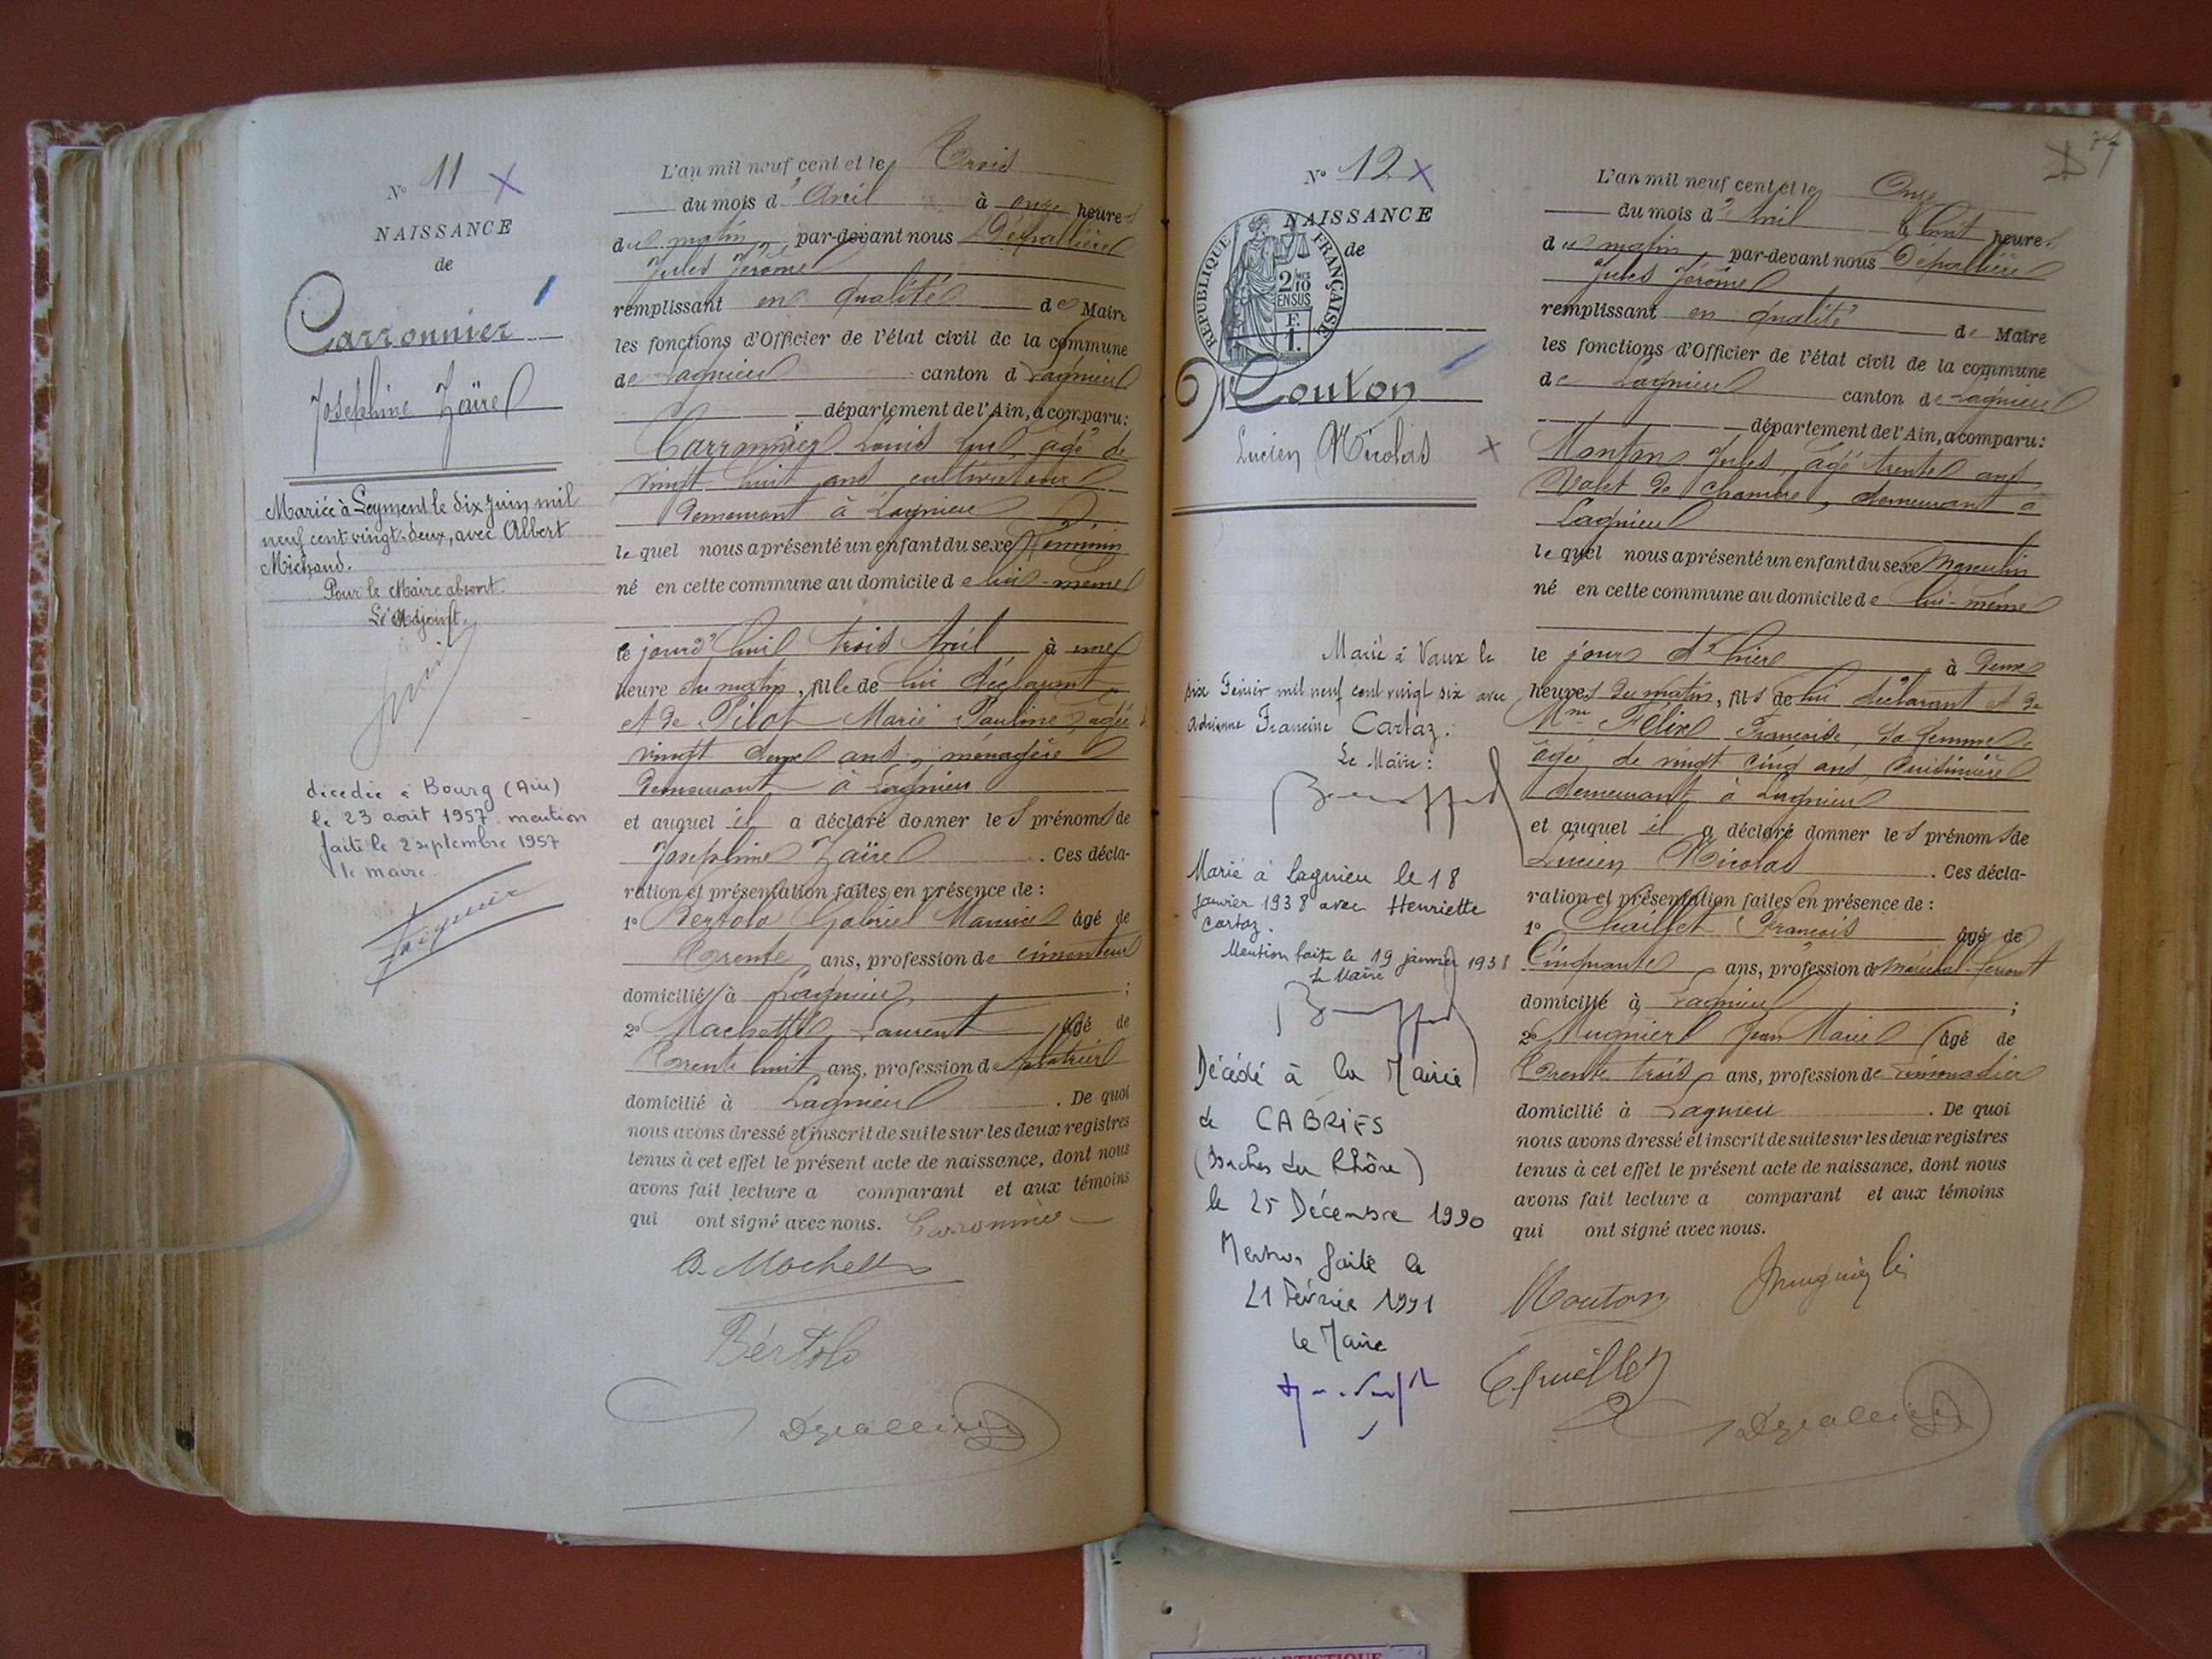 N° 11 X
NAISSANCE
de
Carronnier
Joséphine Zaïre
Mariée à Leyment le dix Juin mil
neuf cent vingt-deux, avec Albert
Michaud.
Pour le Maire absent.
L'Adjoint.
décédée à Bourg (Ain)
le 23 août 1957. mention
faite le 2 septembre 1957
le maire.
L'an mil neuf cent et le Trois
du mois d'Avril à onze heures
du matin par-devant nous Dépallière
Jules Jérôme
remplissant en qualité de Maire
les fonctions d'Officier de l'état civil de la commune
de Lagnieu canton d Lagnieu
département de l'Ain, a comparu:
Carronnier Louis âgé de
vingt huit ans cultivateur
demeurant à Lagnieu
le quel nous a présenté un enfant du sexe Féminin
né en cette commune au domicile de lui-même
le jourd'hui trois Avril à une
heure du matin, fille de lui déclarant
et de Pilot Marie Pauline âgée
vingt deux ans, ménagère
demeurant à Lagnieu
et auquel il a déclaré donner les prénoms de
Joséphine Zaïre. Ces décla-
ration et présentation faites en présence de :
1° Bertolo Gabriel Maurice âgé de
Trente ans, profession de cimenteur
domicilié à Lagnieu ;
2° Machetto Laurent âgé de
Trente huit ans, profession de plâtrier
domicilié à Lagnieu. De quoi
nous avons dressé et inscrit de suite sur les deux registres
tenus à cet effet le présent acte de naissance, dont nous
avons fait lecture a comparant et aux témoins
qui ont signé avec nous. Carronnier
Machetto
Bértolo
Depallière
N° 12 X
NAISSANCE
de
REPUBLIQUE FRANÇAISE
2/10
EN SUS
F.
1.
Mouton
Lucien Nicolas X
Marié à Vaux le
six Février mil neuf cent vingt six avec
Adrienne Francine Cartaz.
Le Maire :
Marié à Lagnieu le 18
janvier 1938 avec Henriette
Cartaz.
Mention faite le 19 janvier 1938
Le Maire
Décédé à la Mairie
de CABRIES
(Bouches du Rhône)
le 25 Décembre 1990
Mention faite le
21 Février 1991
le Maire
L'an mil neuf cent et le Onze
du mois d'Avril à huit heures
du matin par-devant nous Dépallière
Jules Jérôme
remplissant en qualité de Maire
les fonctions d'Officier de l'état civil de la commune
de Lagnieu canton de Lagnieu
département de l'Ain, a comparu :
Mouton Jules, âgé trente ans
Valet de chambre, demeurant à
Lagnieu
le quel nous a présenté un enfant du sexe Masculin
né en cette commune au domicile de lui-même
le jour d'hier à deux
heures du matin, fils de lui déclarant et de
Mme Félix Françoise, sa femme
âgée de vingt cinq ans, cuisinière
demeurant à Lagnieu
et auquel il a déclaré donner les prénoms de
Lucien Nicolas. Ces décla-
ration et présentation faites en présence de :
1° Chaillet François âgé de
Cinquante ans, profession de Maréchal-ferrant
domicilié à Lagnieu ;
2° Mugnier Jean Marie âgé de
Trente trois ans, profession de Limonadier
domicilié à Lagnieu. De quoi
nous avons dressé et inscrit de suite sur les deux registres
tenus à cet effet le présent acte de naissance, dont nous
avons fait lecture a comparant et aux témoins
qui ont signé avec nous.
Mouton
Depallière